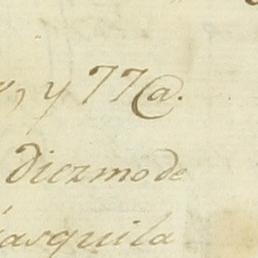 , y 77@.
diezmo de
asquila